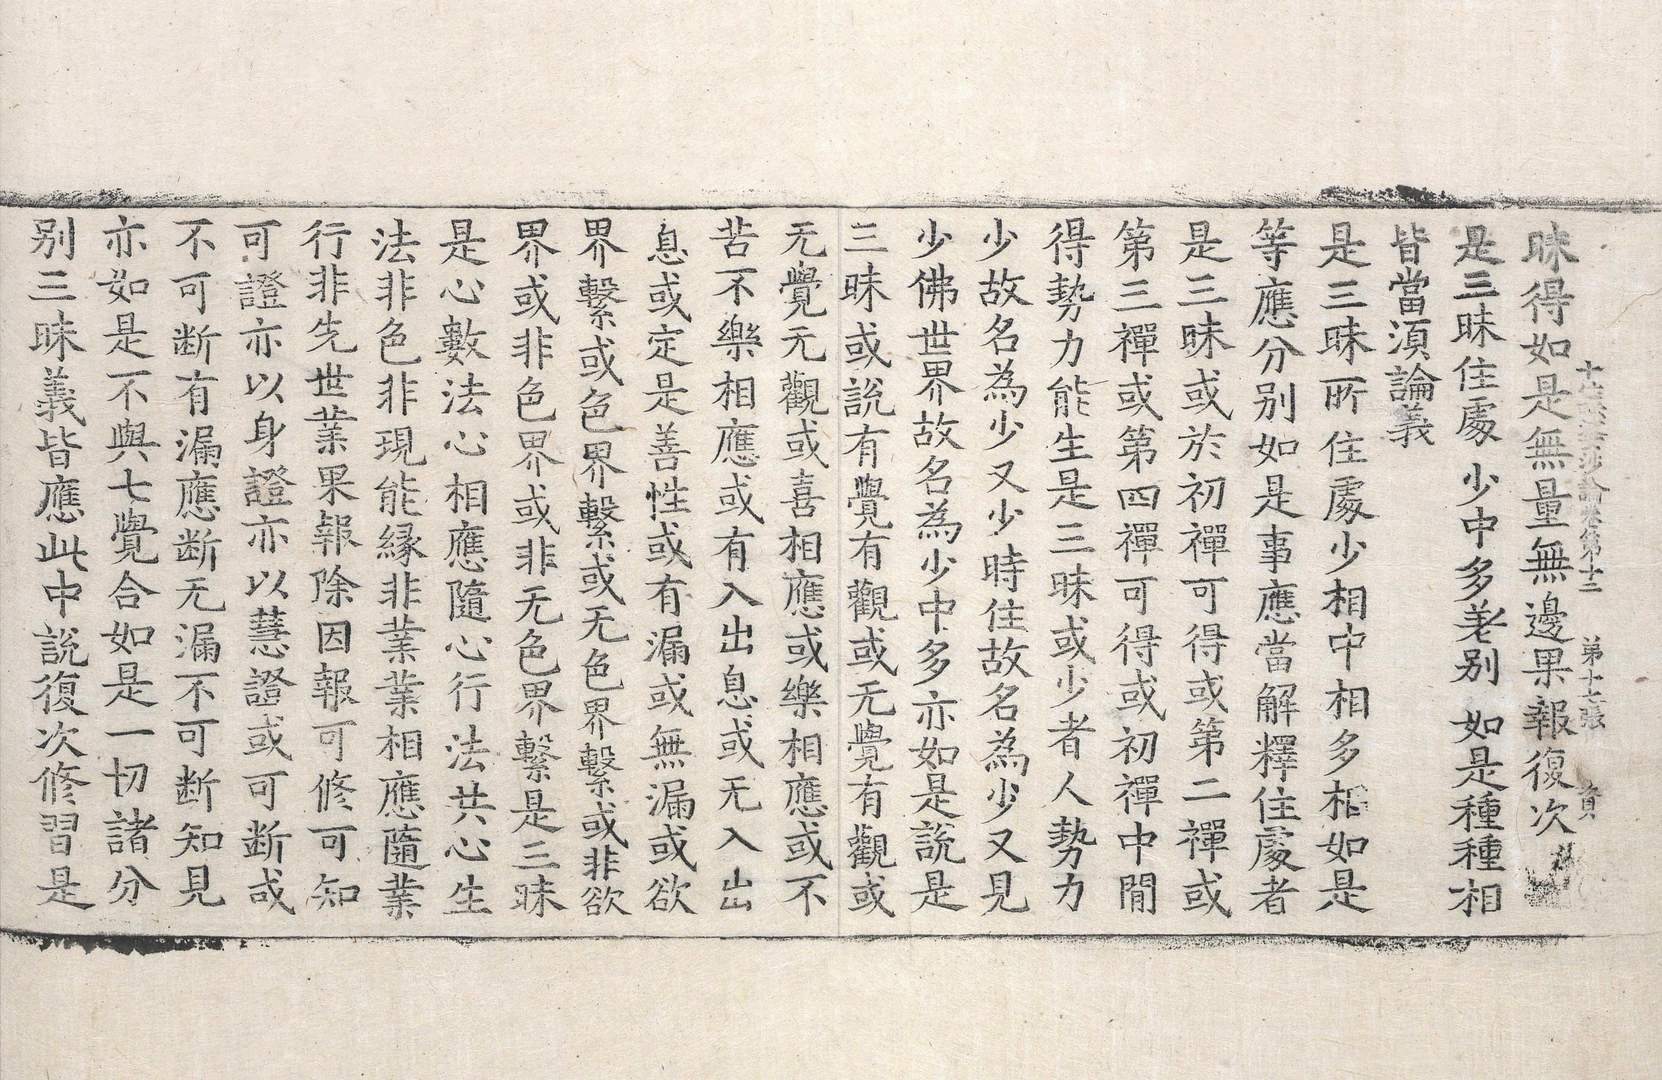 十住毗婆沙論卷第十二　第十七張　資
昧得如是無量無邊果報復次
是三昧住處少中多差別如是種種相
皆當須論義
是三昧所住處少相中相多相如是
等應分別如是事應當解釋住處者
是三昧或於初禪可得或第二禪或
第三禪或第四禪可得或初禪中閒
得勢力能生是三昧或少者人勢力
少故名為少又少時住故名為少又見
少佛世界故名為少中多亦如是說是
三昧或說有覺有觀或无覺有觀或
无覺无觀或喜相應或樂相應或不
苦不樂相應或有入出息或无入出
息或定是善性或有漏或無漏或欲
界繫或色界繫或无色界繫或非欲
界或非色界或非无色界繫是三昧
是心數法心相應隨心行法共心生
法非色非現能緣非業業相應隨業
行非先世業果報除因報可修可知
可證亦以身證亦以慧證或可断或
不可断有漏應断无漏不可断知見
亦如是不與七覺合如是一切諸分
别三昧義皆應此中說復次修習是